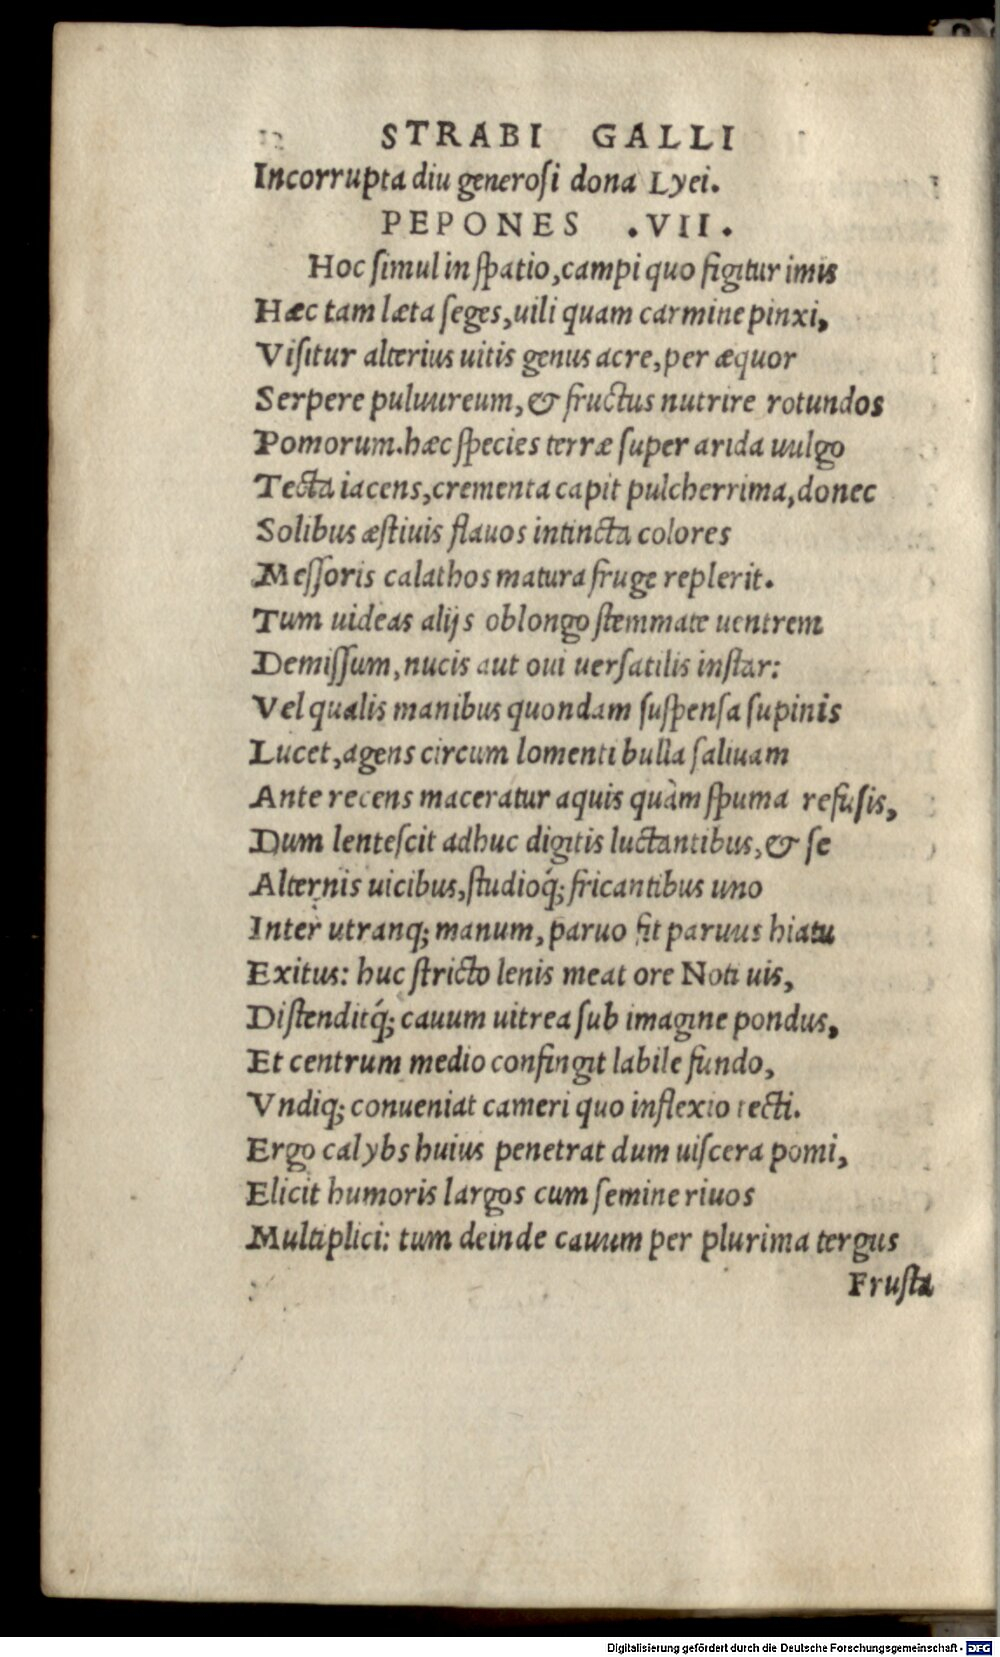 12 STRABI GALLI
Incorrupta diu generosi dona Lyei.
PEPONES .VII.
Hoc simul in spatio, campi quo figitur imis
Hæc tam læta seges, uili quam carmine pinxi,
Visitur alterius uitis genus acre, per æquor
Serpere puluureum, & fructus nutrire rotundos
Pomorum. hæc species terræ super arida uulgo
Tecta iacens, crementa capit pulcherrima, donec
Solibus æstiuis flauos intincta colores
Messoris calathos matura fruge replerit.
Tum uideas alijs oblongo stemmate uentrem
Demissum, nucis aut oui uersatilis instar:
Vel qualis manibus quondam suspensa supinis
Lucet, agens circum lomenti bulla saliuam
Ante recens maceratur aquis quàm spuma refusis,
Dum lentescit adhuc digitis luctantibus, & se
Alternis uicibus, studioq́; fricantibus uno
Inter utranq; manum, paruo fit paruus hiatu
Exitus: huc stricto lenis meat ore Noti uis,
Distenditq́; cauum uitrea sub imagine pondus,
Et centrum medio confingit labile fundo,
Vndiq; conueniat cameri quo inflexio tecti.
Ergo calybs huius penetrat dum uiscera pomi,
Elicit humoris largos cum semine riuos
Multiplici: tum deinde cauum per plurima tergus
Frusta
Digitalisierung gefördert durch die Deutsche Forschungsgemeinschaft - DFG